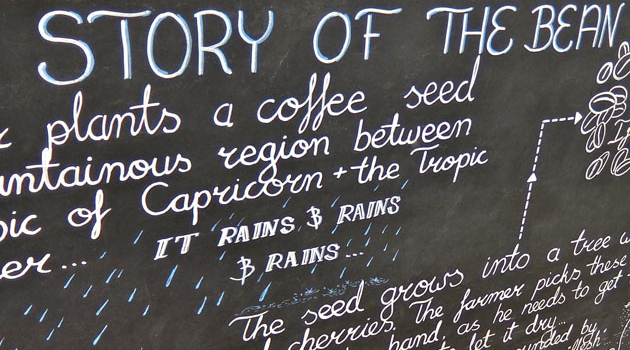 STORY OF THE BEAN
plants a coffee seed
region between
of Capricorn + the Tropic
IT RAINS & RAINS
& RAINS...
The seed grows into a tree
cherries. The farmer picks these
hand, as he needs to get
to let it dry...
by